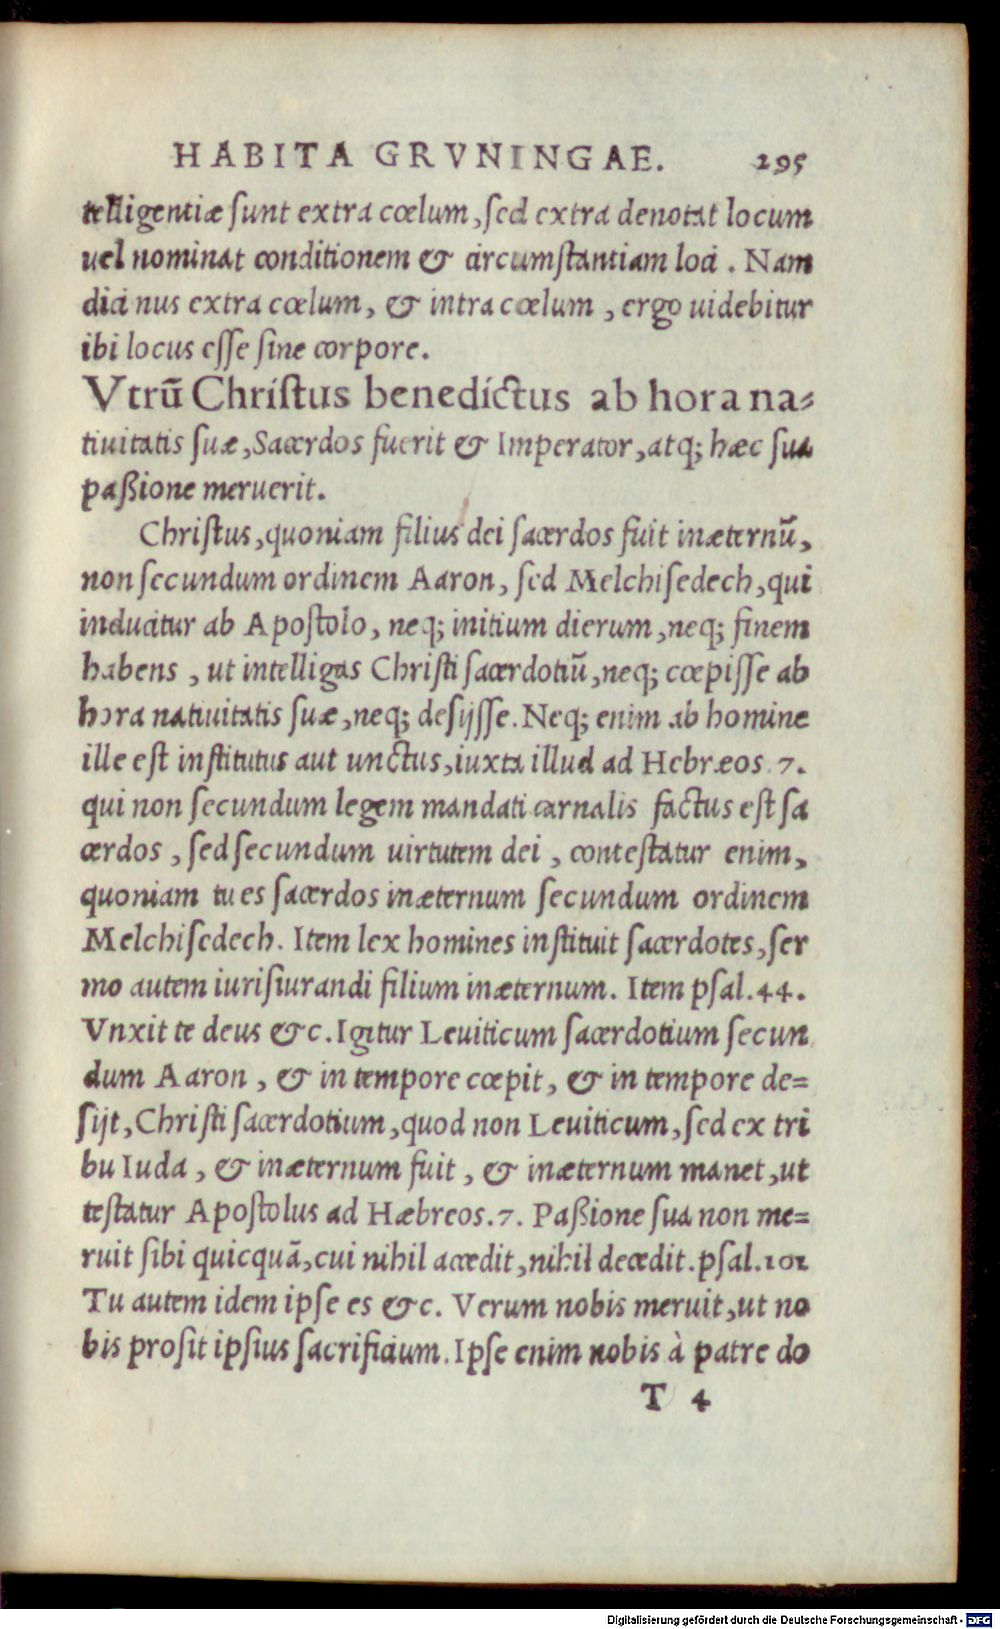 HABITA GRVNINGAE. 295
telligentiæ ſunt extra cœlum, ſed extra denotat locum
uel nominat conditionem & circumſtantiam loci. Nam
dicimus extra cœlum, & intra cœlum, ergo uidebitur
ibi locus eſſe ſine corpore.
Vtrū Chriſtus benedictus ab hora na-
tiuitatis ſuæ, Sacerdos fuerit & Imperator, atq; hæc ſua
paßione meruerit.
Chriſtus, quoniam filius dei ſacerdos fuit inæternū,
non ſecundum ordinem Aaron, ſed Melchiſedech, qui
inducitur ab Apoſtolo, neq; initium dierum, neq; finem
habens, ut intelligas Chriſti ſacerdotiū, neq; cœpiſſe ab
hora natiuitatis ſuæ, neq; deſijſſe. Neq; enim ab homine
ille eſt inſtitutus aut unctus, iuxta illud ad Hebræos 7.
qui non ſecundum legem mandati carnalis factus eſt ſa
cerdos, ſed ſecundum uirtutem dei, conteſtatur enim,
quoniam tu es ſacerdos inæternum ſecundum ordinem
Melchiſedech. Item lex homines inſtituit ſacerdotes, ſer
mo autem iuriſiurandi filium inæternum. Item pſal. 44.
Vnxit te deus &c. Igitur Leuiticum ſacerdotium ſecun
dum Aaron, & in tempore cœpit, & in tempore de=
ſijt, Chriſti ſacerdotium, quod non Leuiticum, ſed ex tri
bu Iuda, & inæternum fuit, & inæternum manet, ut
teſtatur Apoſtolus ad Hæbreos. 7. Paßione ſua non me=
ruit ſibi quicquā, cui nihil accedit, nihil decedit. pſal. 101
Tu autem idem ipſe es &c. Verum nobis meruit, ut no
bis proſit ipſius ſacrificium. Ipſe enim nobis à patre do
T 4
Digitalisierung gefördert durch die Deutsche Forschungsgemeinschaft - DFG